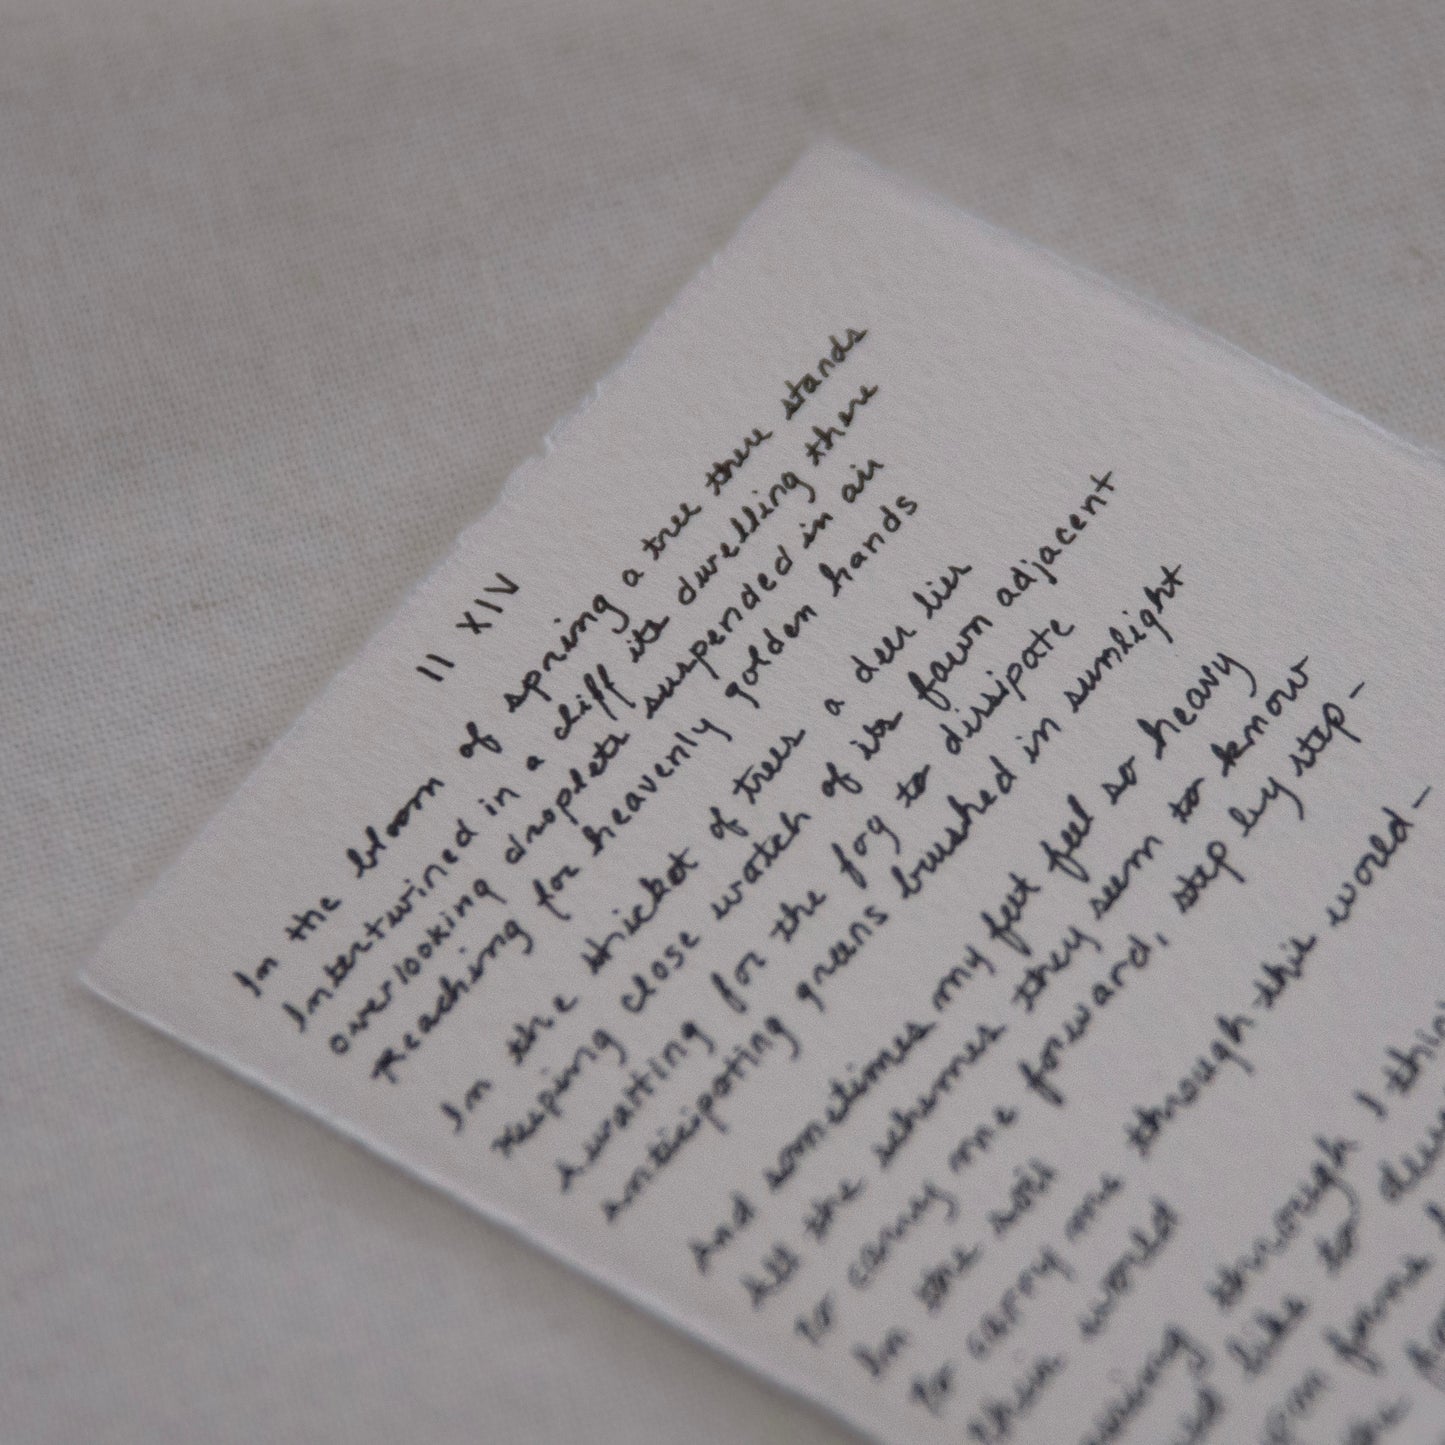 II XIV
In the bloom of spring a tree there stands
Intertwined in a cliff its dwelling there
overlooking droplets suspended in air
Reaching for heavenly golden hands
In the thicket of trees a deer lies
Keeping close watch of its fawn adjacent
Awaiting for the fog to dissipate
Anticipating greens brushed in sunlight
And sometimes my feet feel so heavy
All the schemes they seem to know
To carry me forward, step by step—
In the soil
To carry me through this world—
This world
through I
like to